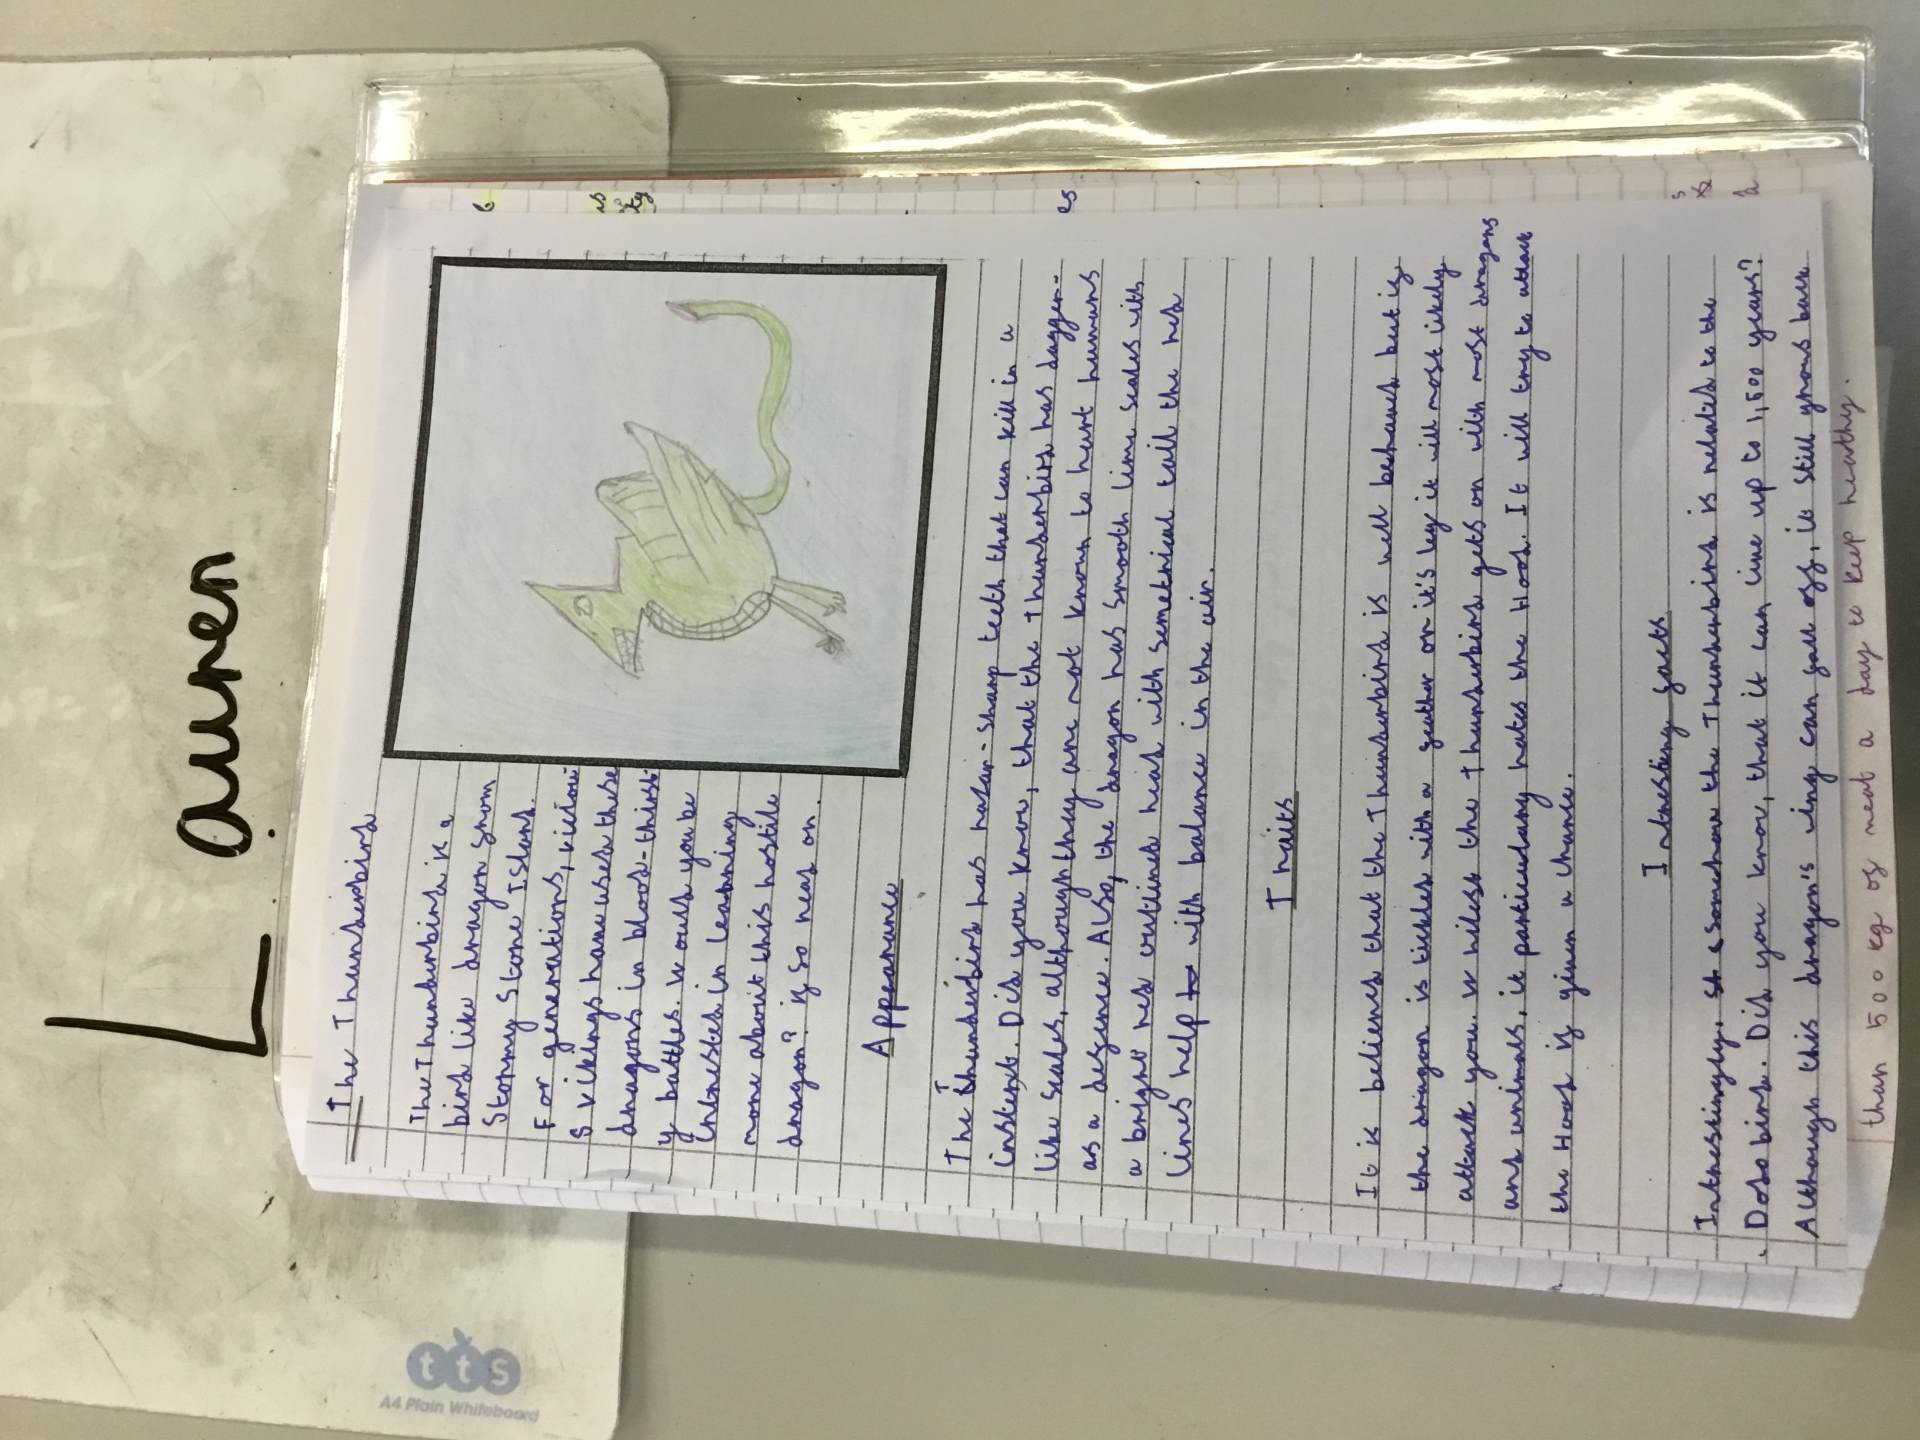 Lauren
tts
A4 Plain Whiteboard
The Thunderbird
The Thunderbird is a
bird like dragon from
Stormy Stone Island.
For generations, viciou
s vikings have used these
dragons in blood-thirst
y battles. Would you be
intrested in learning
more about this hostile
dragon? if so read on.
Appearance
The Thunderbird has razar-sharp teeth that can kill in a
instent. Did you know, that the Thunderbird has dagger-
like scales, although they are not known to hurt humans
as a defence. Also, the dragon has smooth lime scales with
a bright red outlined head with semetrical tail the red
lines help to with balance in the air.
Traits
It is believed that the Thunderbird is well behaved but if
the dragon is tickled with a feather on it's leg it will most likely
attack you. Whilst the Thunderbird gets on with most dragons
and animals, it particulary hates the Hood. It will try to attack
the Hood if given a chance.
Intresting facts
Intresingly, somehow the Thunderbird is related to the
Dodo bird. Did you know, that it can live up to 1,500 years?
Although this dragon's wing can fall off, it still grows back
than 500 kg of meat a day to keep hearthy.
is
ty
es